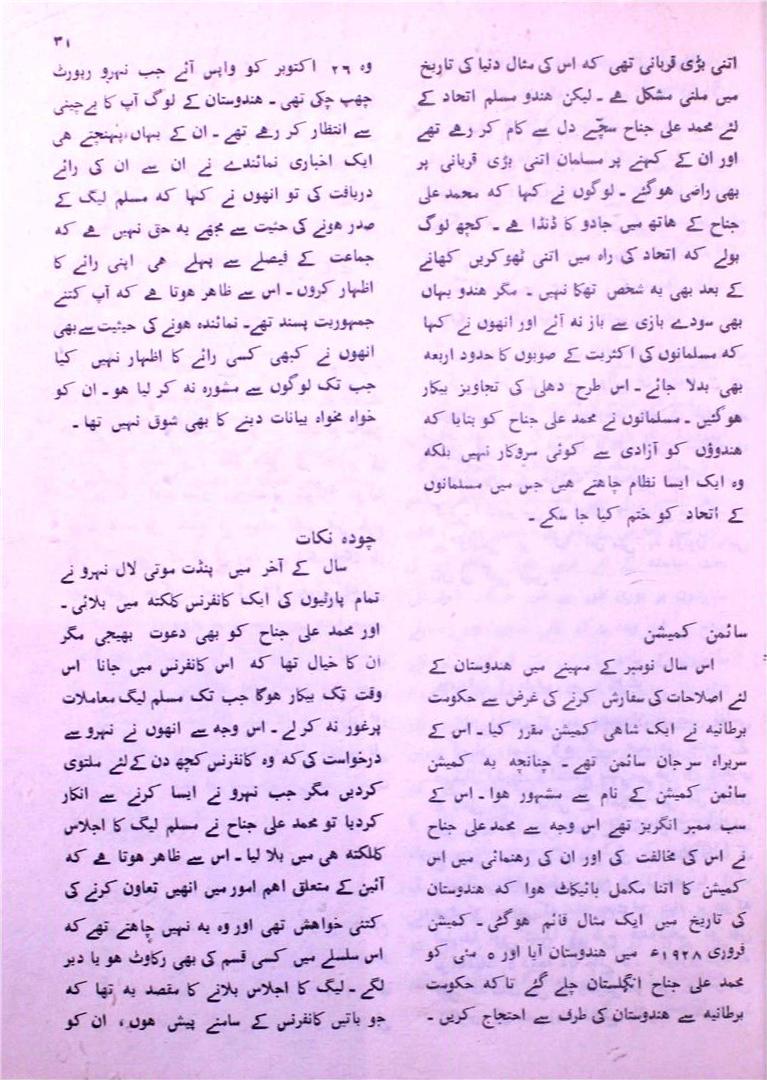 ۳۱
اتنی بڑی قربانی تھی کہ اس کی مثال دنیا کی تاریخ
میں ملنی مشکل ہے ۔ لیکن ہندو مسلم اتحاد کے
لئے محمد علی جناح سچے دل سے کام کر رہے تھے
اور ان کے کہنے پر مسلمان اتنی بڑی قربانی پر
بھی راضی ہوگئے ۔ لوگوں نے کہا کہ محمد علی
جناح کے ہاتھ میں جادو کا ڈنڈا ہے ۔ کچھ لوگ
بولے کہ اتحاد کی راہ میں اتنی ٹھوکریں کھانے
کے بعد بھی یہ شخص تھکا نہیں ۔ مگر ہندو یہاں
بھی سودے بازی سے باز نہ آئے اور انھوں نے کہا
کہ مسلمانوں کی اکثریت کے صوبوں کا حدود اربعہ
بھی بدلا جائے ۔ اس طرح دھلی کی تجاویز بیکار
ہوگئیں ۔ مسلمانوں نے محمد علی جناح کو بتایا کہ
ہندوؤں کو آزادی سے کوئی سروکار نہیں بلکہ
وہ ایک ایسا نظام چاہتے ہیں جس میں مسلمانوں
کے اتحاد کو ختم کیا جا سکے ۔
سائمن کمیشن
اس سال نومبر کے مہینے میں ہندوستان کے
لئے اصلاحات کی سفارش کرنے کی غرض سے حکومت
برطانیہ نے ایک شاہی کمیشن مقرر کیا ۔ اس کے
سربراہ سر جان سائمن تھے ۔ چنانچہ یہ کمیشن
سائمن کمیشن کے نام سے مشہور ہوا ۔ اس کے
سب ممبر انگریز تھے اس وجہ سے محمد علی جناح
نے اس کی مخالفت کی اور ان کی رہنمائی میں اس
کمیشن کا اتنا مکمل بائیکاٹ ہوا کہ ہندوستان
کی تاریخ میں ایک مثال قائم ہوگئی ۔ کمیشن
فروری ۱۹۲۸ء میں ہندوستان آیا اور ۵ مئی کو
محمد علی جناح انگلستان چلے گئے تاکہ حکومت
برطانیہ سے ہندوستان کی طرف سے احتجاج کریں ۔
وہ ۲۶ اکتوبر کو واپس آئے جب نہرو رپورٹ
چھپ چکی تھی ۔ ہندوستان کے لوگ آپ کا بےچینی
سے انتظار کر رہے تھے ۔ ان کے یہاں پہنچتے ہی
ایک اخباری نمائندے نے ان سے ان کی رائے
دریافت کی تو انھوں نے کہا کہ مسلم لیگ کے
صدر ہونے کی حثیت سے مجھے یہ حق نہیں ہے کہ
جماعت کے فیصلے سے پہلے ہی اپنی رائے کا
اظہار کروں ۔ اس سے ظاہر ہوتا ہے کہ آپ کتنے
جمہوریت پسند تھے ۔ نمائندہ ہونے کی حیثیت سے بھی
انھوں نے کبھی کسی رائے کا اظہار نہیں کیا
جب تک لوگوں سے مشورہ نہ کر لیا ہو ۔ ان کو
خواہ مخواہ بیانات دینے کا بھی شوق نہیں تھا ۔
چودہ نکات
سال کے آخر میں پنڈت موتی لال نہرو نے
تمام پارٹیوں کی ایک کانفرنس کلکتہ میں بلائی ۔
اور محمد علی جناح کو بھی دعوت بھیجی مگر
ان کا خیال تھا کہ اس کانفرنس میں جانا اس
وقت تک بیکار ہوگا جب تک مسلم لیگ معاملات
پر غور نہ کرلے ۔ اس وجہ سے انھوں نے نہرو سے
درخواست کی کہ وہ کانفرنس کچھ دن کے لئے ملتوی
کردیں مگر جب نہرو نے ایسا کرنے سے انکار
کردیا تو محمد علی جناح نے مسلم لیگ کا اجلاس
کلکتہ ہی میں بلا لیا ۔ اس سے ظاہر ہوتا ہے کہ
آئین کے متعلق اہم امور میں انھیں تعاون کرنے کی
کتنی خواہش تھی اور وہ یہ نہیں چاہتے تھے کہ
اس سلسلے میں کسی قسم کی بھی رکاوٹ ہو یا دیر
لگے ۔ لیگ کا اجلاس بلانے کا مقصد یہ تھا کہ
جو باتیں کانفرنس کے سامنے پیش ہوں ، ان کو